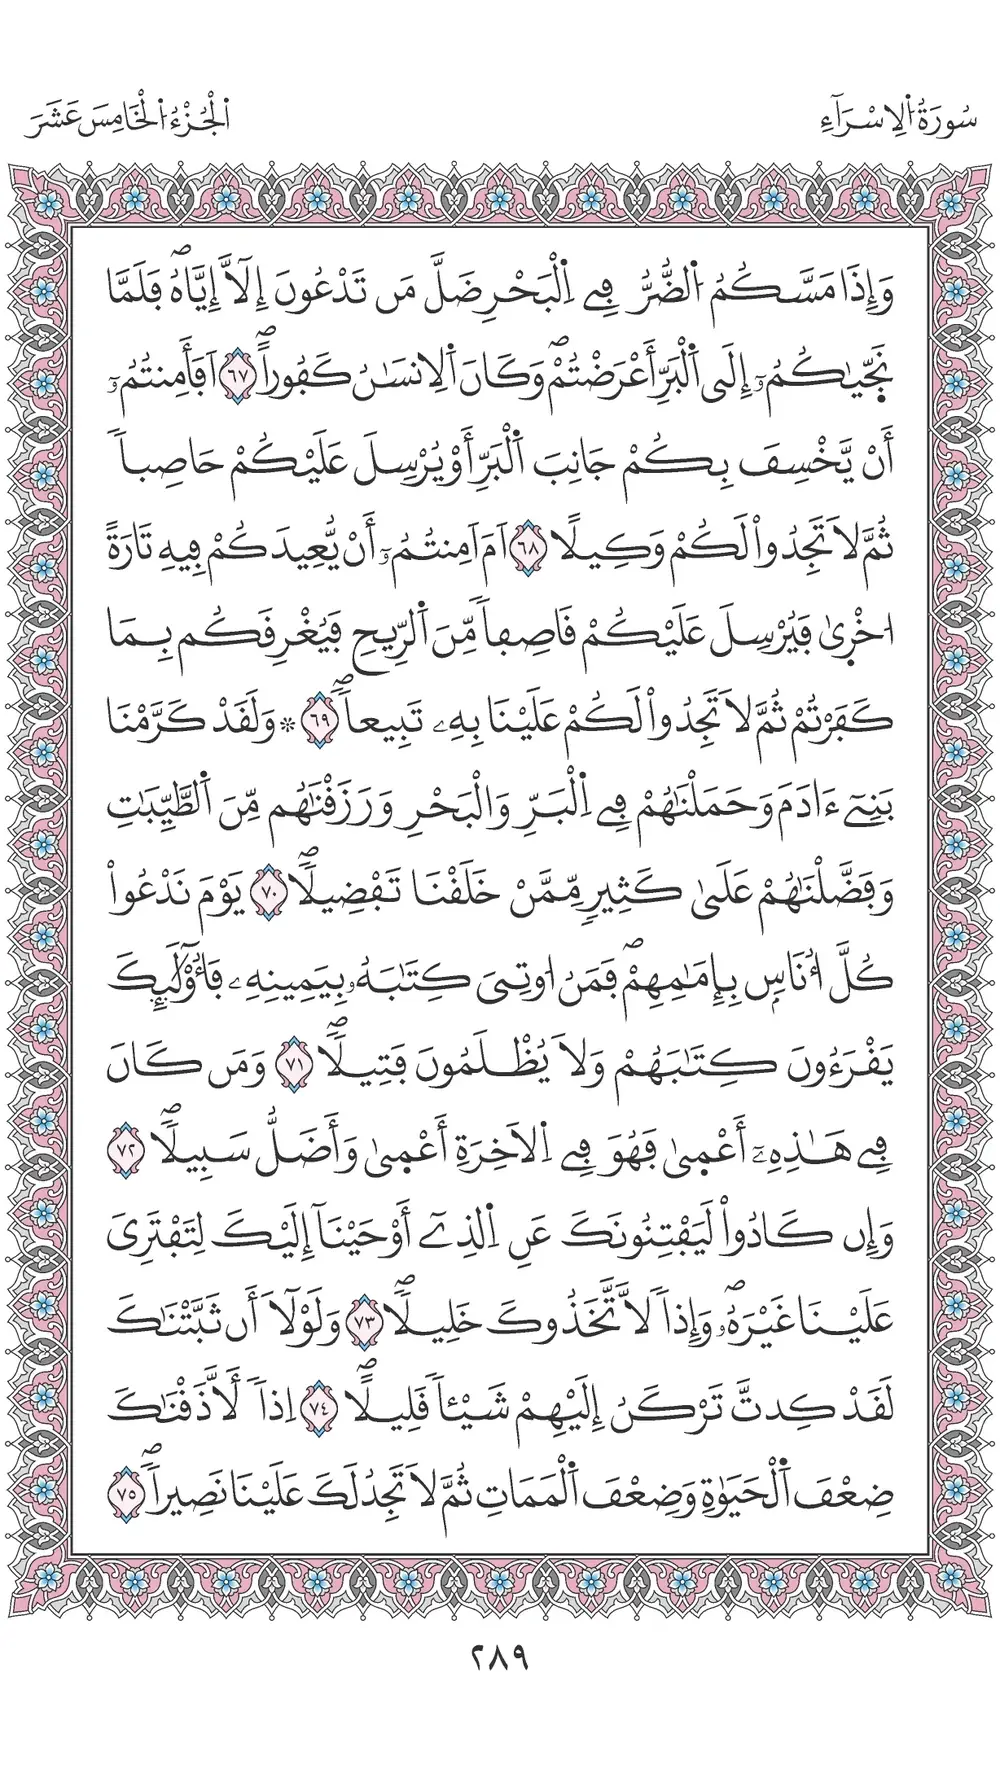 سُورَةُ اُ۬لِاسْرَآءِ
اُ۬لْجُزْءُ اُ۬لْخَامِسَ عَشَرَ
وَإِذَا مَسَّكُمُ اُ۬لضُّرُّ فِے اِ۬لْبَحْرِ ضَلَّ مَن تَدْعُونَ إِلَّآ إِيَّاهُۖ فَلَمَّا
نَجّ۪يٰكُمُۥٓ إِلَى اَ۬لْبَرِّ أَعْرَضْتُمْۖ وَكَانَ اَ۬لِانسَٰنُ كَفُوراًۖ ٦٧ اَفَأَمِنتُمُۥٓ
أَنْ يَّخْسِفَ بِكُمْ جَانِبَ اَ۬لْبَرِّ أَوْ يُرْسِلَ عَلَيْكُمْ حَاصِباٗ
ثُمَّ لَا تَجِدُواْ لَكُمْ وَكِيلًا ٦٨ اَمَ اَمِنتُمُۥٓ أَنْ يُّعِيدَكُمْ فِيهِ تَارَةً
اخْر۪يٰ فَيُرْسِلَ عَلَيْكُمْ قَاصِفاٗ مِّنَ اَ۬لرِّيحِ فَيُغْرِقَكُم بِمَا
كَفَرْتُمْ ثُمَّ لَا تَجِدُواْ لَكُمْ عَلَيْنَا بِهِۦ تَبِيعاٗۖ ٦٩ ۞ وَلَقَدْ كَرَّمْنَا
بَنِےٓ ءَادَمَ وَحَمَلْنَٰهُمْ فِے اِ۬لْبَرِّ وَالْبَحْرِ وَرَزَقْنَٰهُم مِّنَ اَ۬لطَّيِّبَٰتِ
وَفَضَّلْنَٰهُمْ عَلَىٰ كَثِيرٖ مِّمَّنْ خَلَقْنَا تَفْضِيلاٗۖ ٧٠ يَوْمَ نَدْعُواْ
كُلَّ أُنَاسِۢ بِإِمَٰمِهِمْۖ فَمَنُ ا۟وتِيَ كِتَٰبَهُۥ بِيَمِينِهِۦ فَأُوْلَٰٓئِكَ
يَقْرَءُونَ كِتَٰبَهُمْ وَلَا يُظْلَمُونَ فَتِيلاٗۖ ٧١ وَمَن كَانَ
فِے هَٰذِهِۦٓ أَعْم۪يٰ فَهُوَ فِے اِ۬لَاخِرَةِ أَعْم۪يٰ وَأَضَلُّ سَبِيلاٗۖ ٧٢
وَإِن كَادُواْ لَيَفْتِنُونَكَ عَنِ اِ۬لذِےٓ أَوْحَيْنَآ إِلَيْكَ لِتَفْتَرِيَ
عَلَيْنَا غَيْرَهُۥۖ وَإِذاٗ لَّاتَّخَذُوكَ خَلِيلاٗۖ ٧٣ وَلَوْلَآ أَن ثَبَّتْنَٰكَ
لَقَدْ كِدتَّ تَرْكَنُ إِلَيْهِمْ شَيْـٔاٗ قَلِيلاًۖ ٧٤ اِذاٗ لَّأَذَقْنَٰكَ
ضِعْفَ اَ۬لْحَيَوٰةِ وَضِعْفَ اَ۬لْمَمَاتِ ثُمَّ لَا تَجِدُ لَكَ عَلَيْنَا نَصِيراٗۖ ٧٥
٢٨٩